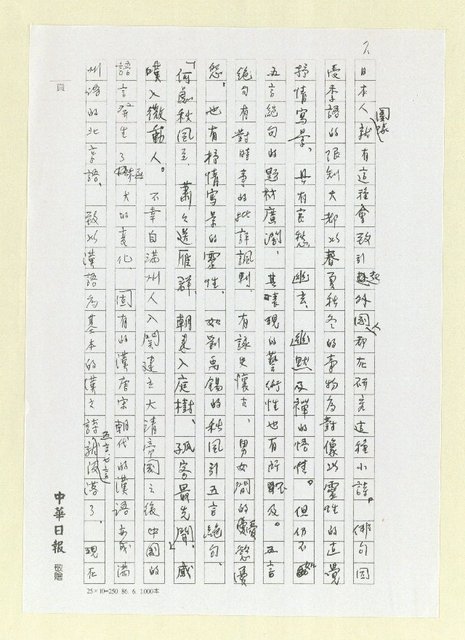 7.
日本人就有這種會致引起外國人都在研究這種小詩。俳句因
團隊
受季語的限制大都以春夏秋冬的事物為對像以靈性的直覺
抒情寫景。具有哀愁 幽玄、幽默及禪的悟性。但仍不
五言絕句的題材廣濶。其表現的藝術性也有所不及。五言
絕句有對時事的批評諷刺、有詠史懷古、男女間的愛慾憂
怨。也有抒情寫景的靈性。如劉禹錫的秋風引五言絕句、
「何處秋風至 蕭蕭送雁群 朝來入庭樹、孤客最先聞」感
嘆入微動人。不幸自滿州人入關建立大清帝國之後中國的
語言發生了 大的變化、固有的漢唐宋朝代的漢語變成滿
州調的北京語。致以漢語為基本的漢文詩詞沒落了。現在
五言七言
頁
中華日報 敬贈
25×10=250 86. 6. 1000本